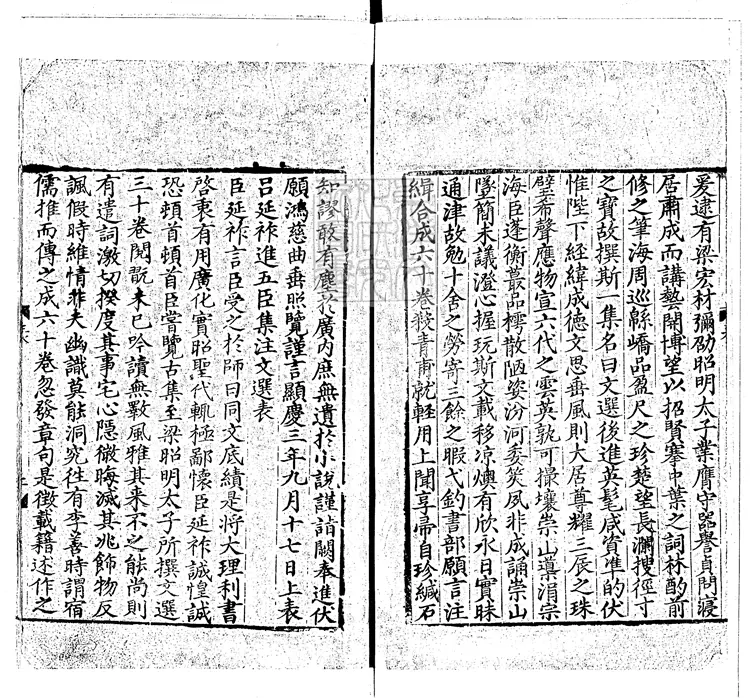 爰逮有梁宏材彌劭昭明太子業膺守器譽貞問寢
居肅成而講藝開博望以招賢搴中葉之詞林酌前
修之筆海周巡緜嶠品盈尺之珍楚望長瀾搜徑寸
之寶故撰斯一集名曰文選後進英髦咸資准的伏
惟陛下經緯成德文思垂風則大居尊耀三辰之珠
璧希聲應物宣六代之雲英孰可撮壤崇山導涓宗
海臣蓬衡蕞品樗散陋姿汾河委筴夙非成誦崇山
墜簡未議澄心握玩斯文載移涼燠有欣永日實昧
通津故勉十舍之勞寄三餘之暇弋釣書部願言注
緝合成六十卷殺青甫就輕用上聞享帚自珍緘石
知謬敢有塵於廣内庶無遺於小說謹詣闕奉進伏
願鴻慈曲垂照覽謹言顯慶三年九月十七日上表
呂延祚進五臣集注文選表
臣延祚言臣受之於師曰同文底績是將大理利書
啓衷有用廣化實昭聖代輒極鄙懷臣延祚誠惶誠
恐頓首頓首臣嘗覽古集至梁昭明太子所撰文選
三十卷閱翫未已吟讀無斁風雅其來不之能尚則
有遣詞激切揆度其事宅心隱微晦滅其兆飾物反
諷假時維情非夫幽識莫能洞究往有李善時謂宿
儒推而傳之成六十卷忽發章句是徵載籍述作之